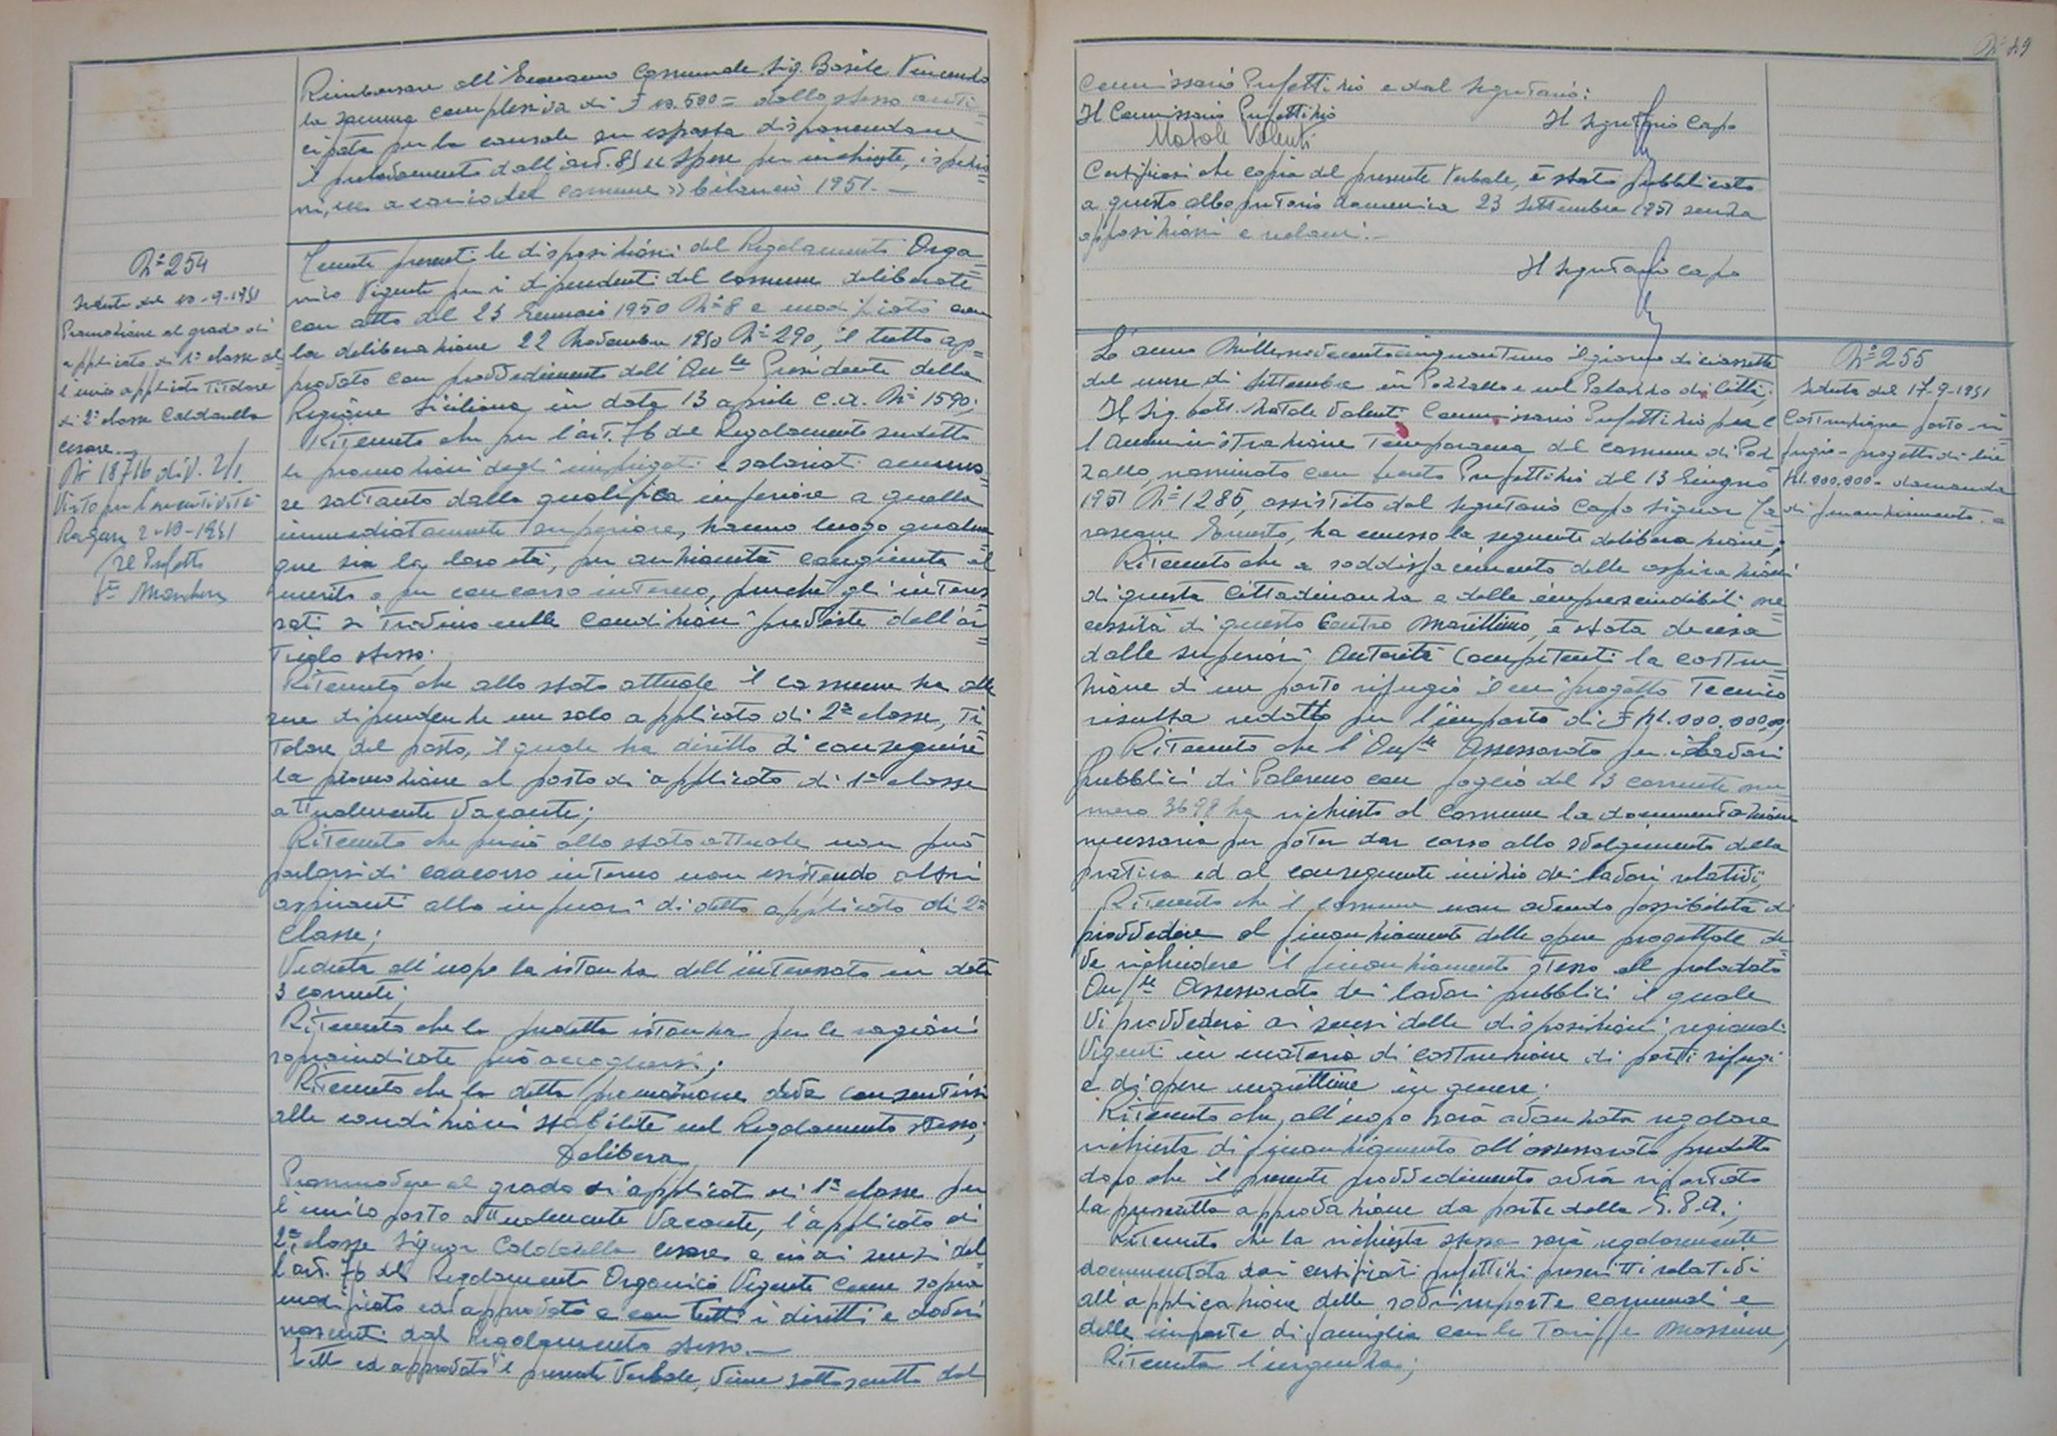 Rimborsare all'Economo Comunale Sig. Basile Vincenzo
la somma complessiva di £ 10.500= dallo stesso anti=
cipata per la causale su esposta disponendone
il prelevamento dall'art. 81 Spese per inchieste, ispezio=
ni, ecc a carico del comune » bilancio 1951. —
N° 254
Seduta del 10-9-1951
Promozione al grado di
applicato di 1ª classe al=
l'unico applicato Titolare
di 2ª classe Caldarella
Cesare. —
N° 18716 div. 2/1
Visto per l'esecutività
Ragusa 2-10-1951
Il Prefetto
Tenute presenti le disposizioni del Regolamento Orga=
nico Vigente per i dipendenti del comune deliberate
con atto del 23 Gennaio 1950 N° 8 e modificato con
la deliberazione 22 Novembre 1950 N° 290, il tutto ap=
provato con provvedimento dell'On.le Presidente della
Regione Siciliana in data 13 aprile c.a. N° 1590;
Ritenuto che per l'art. 76 del Regolamento suddetto
le promozioni degli impiegati e salariati ammes=
se soltanto dalla qualifica inferiore a quella
immediatamente superiore, hanno luogo qualun
que sia la loro età, per anzianità congiunta al
merito o per concorso interno, purché gli interes
sati si trovino nelle condizioni previste dall'ar=
ticolo stesso;
Ritenuto che allo stato attuale il comune ha alle
sue dipendenze un solo applicato di 2ª classe, Ti
tolare del posto, il quale ha diritto di conseguire
la promozione al posto di applicato di 1ª classe
attualmente Vacante;
Ritenuto che perciò allo stato attuale non può
parlarsi di concorso interno non esistendo altri
aspiranti allo infuori di detto applicato di 2ª
Classe;
Veduta all'uopo la istanza dell'interessato in data
3 corrente;
Ritenuto che la predetta istanza per le ragioni
sopraindicate può accogliersi;
Ritenuto che la detta promozione deve consentirsi
alle condizioni stabilite nel Regolamento stesso;
Delibera
Promuovere al grado di applicato di 1ª classe per
l'unico posto attualmente Vacante, l'applicato di
2ª classe Signor Caldarella Cesare e ciò ai sensi del
l'art. 76 del Regolamento Organico Vigente come sopra
modificato ed approvato e con tutti i diritti e doveri
nascenti dal Regolamento stesso. —
Letto ed approvato il presente Verbale, viene sottoscritto dal
N° 49
Commissario Prefettizio e dal Segretario:
Il Commissario Prefettizio Il Segretario Capo
Natale Valenti
Certificasi che copia del presente Verbale, è stata pubblicata
a questo albo pretorio domenica 23 Settembre 1951 senza
opposizioni e reclami. —
Il Segretario Capo
N° 255
Seduta del 17-9-1951
Costruzione porto ri=
fugio - progetto di lire
domanda
di finanziamento. =
L'anno Millenovecentocinquantuno il giorno diciassette
del mese di Settembre in Pozzallo e nel Palazzo di Città;
Il Sig. Dott. Natale Valenti Commissario Prefettizio per l
l'Amministrazione Temporanea del comune di Poz
zallo, nominato con Prefettizio del 13 Giugno
1951 N° 1285, assistito dal Segretario Capo Signor
Ernesto, ha emesso la seguente deliberazione;
Ritenuto che a soddisfacimento delle aspirazioni
di questa Cittadinanza e delle imprescindibili ne
cessità di questo Centro Marittimo, è stata decisa
dalle superiori Autorità Competenti la costru=
zione di un porto rifugio il cui progetto Tecnico
risulta redatto per l'importo di £
Ritenuto che l'On/le Assessorato per i Lavori
Pubblici di Palermo con foglio del 13 corrente nu=
mero 3698 ha richiesto al Comune la documentazione
necessaria per poter dar corso allo svolgimento della
pratica ed al conseguente inizio dei lavori relativi;
Ritenuto che il comune non avendo possibilità di
provvedere al finanziamento delle opere progettate de
ve richiedere il finanziamento stesso al prelodato
On/le Assessorato dei lavori pubblici il quale
vi provvederà ai sensi delle disposizioni regionali
Vigenti in materia di costruzione di porti rifugi
e di opere marittime in genere;
Ritenuto che, all'uopo sarà avanzata regolare
richiesta di finanziamento all'assessorato predetto
dopo che il presente provvedimento avrà riportato
la prescritta approvazione da parte della G.P.A.;
Ritenuto che la richiesta stessa sarà regolarmente
documentata dai certificati prefettizi prescritti relativi
all'applicazione delle sovrimposte comunali e
delle imposte di famiglia con le Tariffe Massime;
Ritenuta l'urgenza;